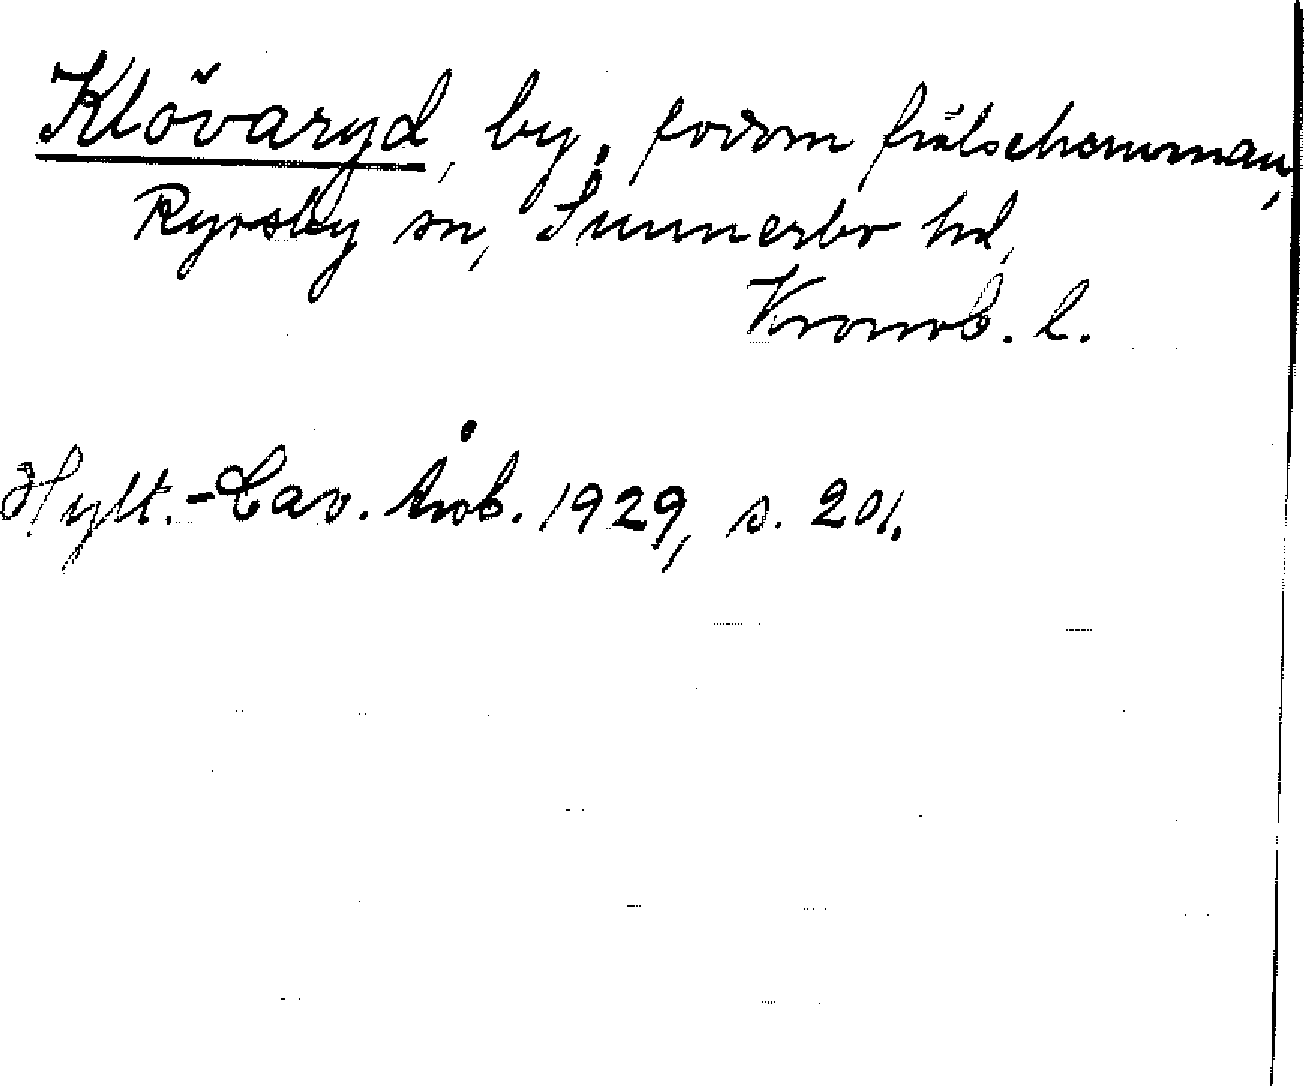 Klövaryd, by, fordom frälsehemman,
Ryssby sn, Sunnerbo hd,
Kronob. l.
Hylt.-Cav. Årsb. 1929, s. 201.